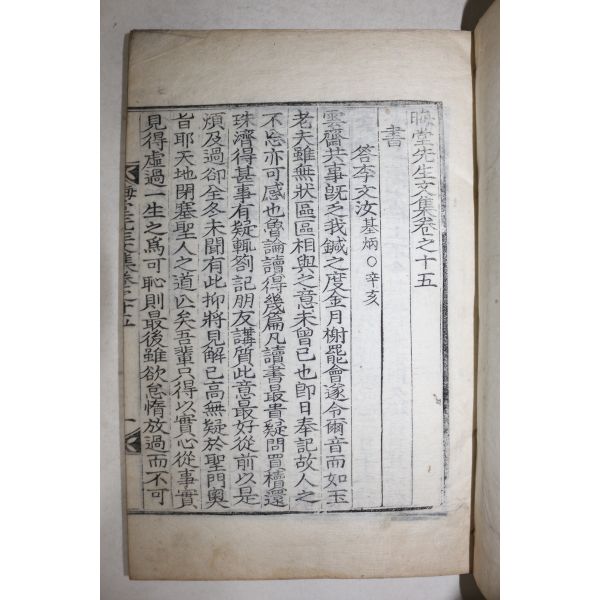 晦堂先生文集卷之十五
書
答李文汝基炳○辛亥
雲齋共事旣乏我鍼之度金月榭罷會遂令爾音而如玉
老夫雖無狀區區相與之意未曾已也卽日奉記故人之
不忘亦可感也魯論讀得幾篇凡讀書最貴疑問買櫝還
珠濟得甚事有疑輒箚記朋友講質此意最好從前以是
煩及過卻全冬未聞有此抑將見解已高無疑於聖門奧
旨耶天地閉塞聖人之道亾矣吾輩只得以實心從事實
見得虛過一生之爲可恥則最後雖欲怠惰放過而不可
晦堂先生文集卷之十五
一